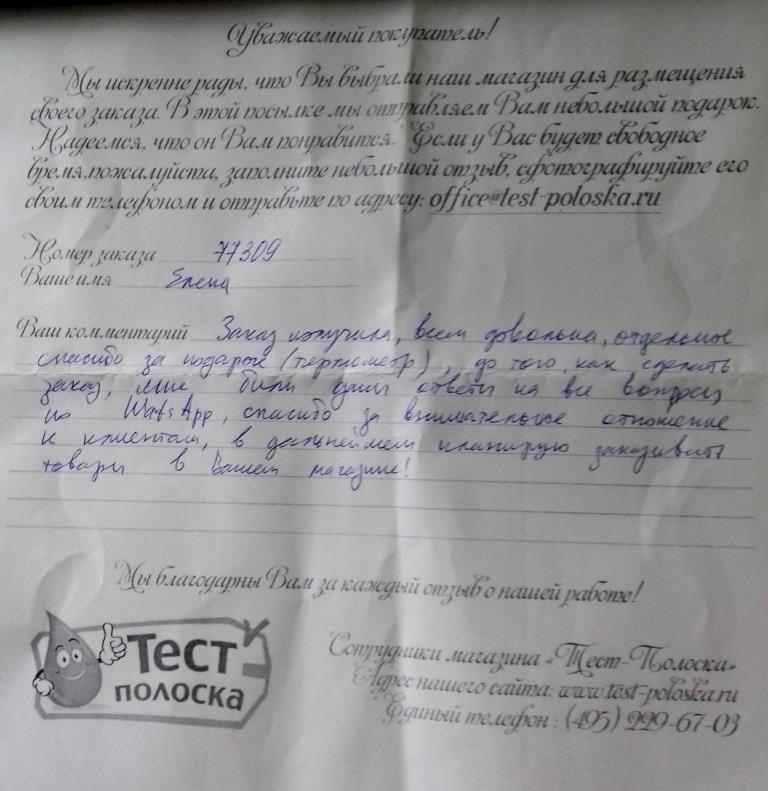 Уважаемый покупатель!
Мы искренне рады, что Вы выбрали наш магазин для размещения
своего заказа. В этой посылке мы отправляем Вам небольшой подарок.
Надеемся, что он Вам понравится. Если у Вас будет свободное
время,пожалуйста, заполните небольшой отзыв, сфотографируйте его
своим телефоном и отправьте по адресу: office@test-poloska.ru
Номер заказа 77309
Ваше имя Елена
Ваш комментарий Заказ получила, всем довольна, отдельное
спасибо за подарок (термометр), до того, как сделать
заказ, мне были даны ответы на все вопросы
по WatsApp, спасибо за внимательное отношение
к клиентам, в дальнейшем планирую заказывать
товары в Вашем магазине!
Мы благодарны Вам за каждый отзыв о нашей работе!
Тест
полоска
Сотрудники магазина «Тест-Полоска»
Адрес нашего сайта: www.test-poloska.ru
Единый телефон : (495) 229-67-03